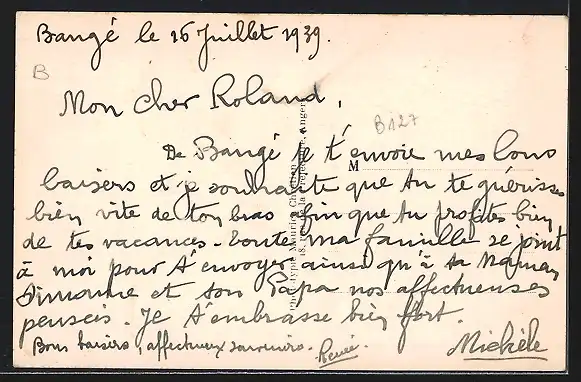 Baugé le 16 Juillet 1939.
B
Mon cher Roland,
B127
De Baugé je t'envoie mes bons
M
baisers et je souhaite que tu te guérisse
bien vite de ton bras afin que tu profites bien
de tes vacances. Toute ma famille se joint
à moi pour t'envoyer ainsi qu'à ta Maman
Simonne et ton Papa nos affectueuses
pensées. Je t'embrasse bien fort.
Bons baisers, affectueux souvenirs. Renée.
Michèle
Phototypie Maurice Chrétien
18, rue de la Préfecture, Angers